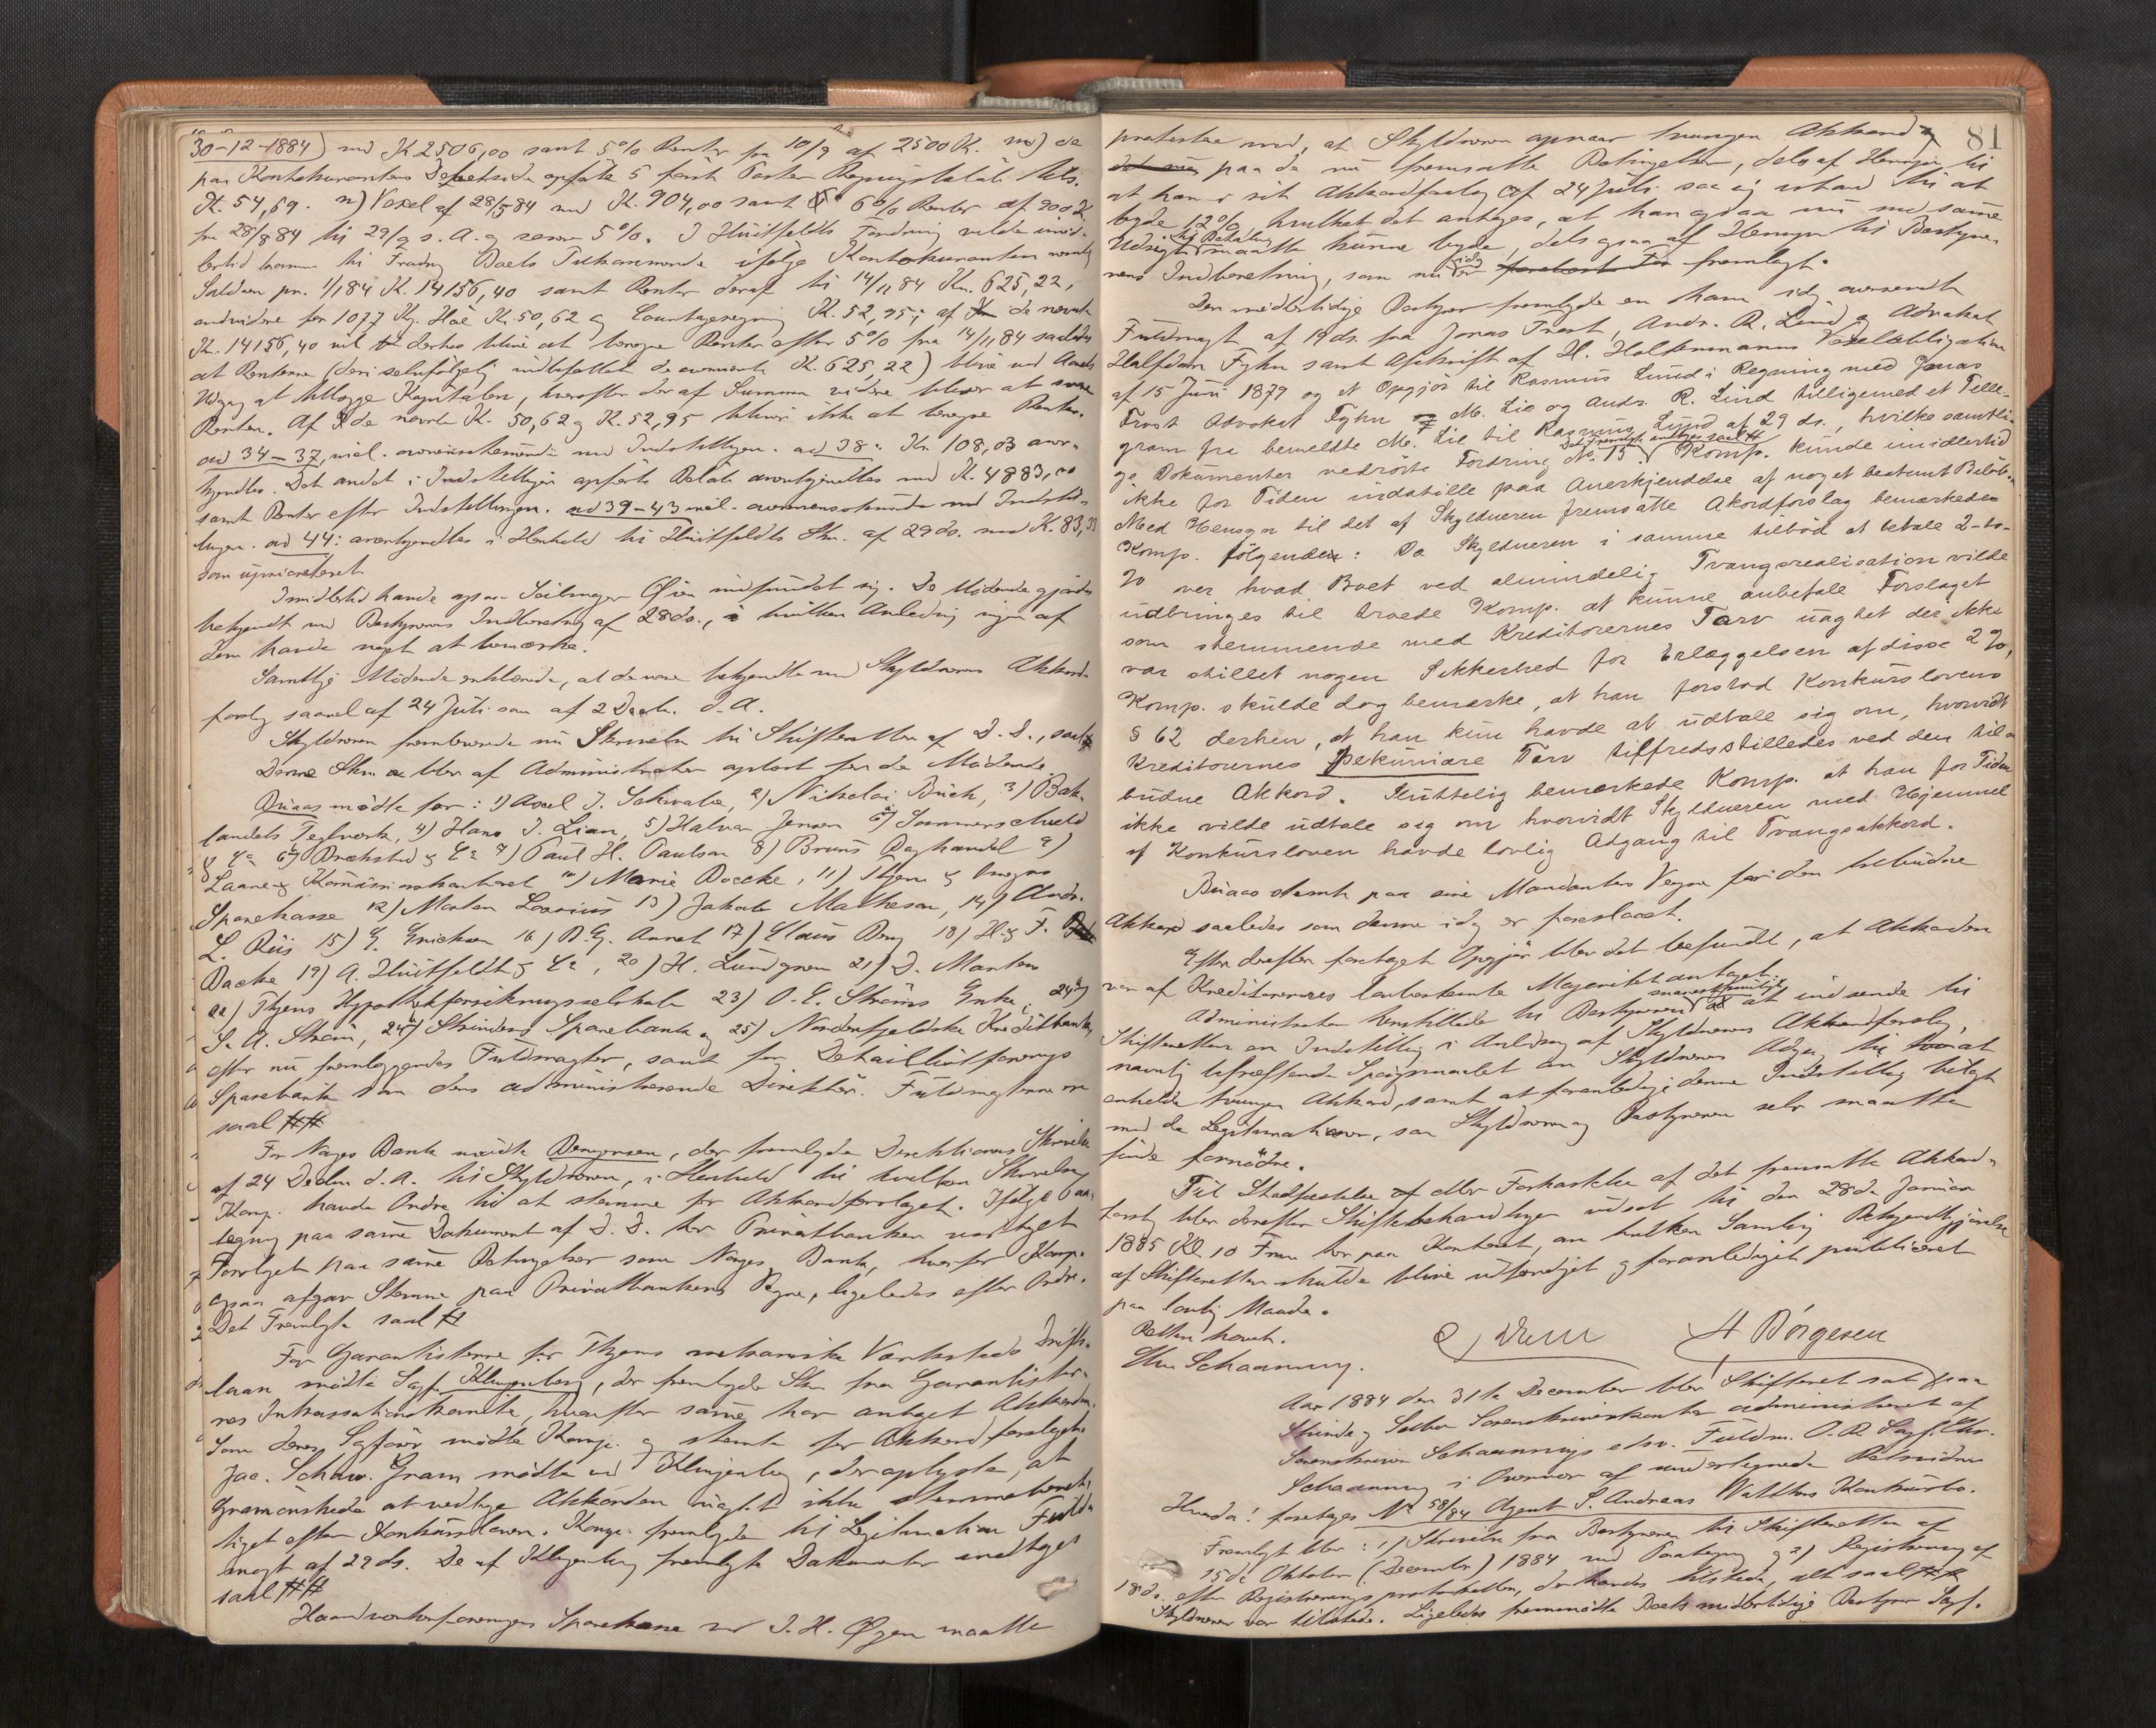 30-12-1884) med K. 2506,00 samt 5% Renter fra 10/9 af 2500 K. m) de
paa Kontokurantens Debetside opførte 5 første Poster
K. 54,69. n) Vexel af 28/5 84 med K. 904,00 samt 6% Renter af 900 K.
fra 28/8 84 til 29/9 s. A. og senere 5%. I Huitfeldts Fordring vilde imid-
lertid komme til Fradrag Boets Tilkommende ifølge Kontokuranten nemlig
Saldoen pr. 1/1 84 K. 14156,40 samt Renter deraf til 14/11 84 Kr. 625,22,
endvidere for 1077 Kg. Høe K. 50,62 og Courtageregning K. 52,95; af de nævnte
K. 14156,40 vil derhos blive at beregne Renter efter 5% fra 14/11 84 saaledes
at Renterne (deri selvfølgelig indbefattet de nævnte K. 625,22) blive ved Aarets
Udgang at tillægge Kapitalen, hvorefter der af Summen videre bliver at svare
Renter. Af de nævnte K. 50,62 og K. 52,95 bliver ikke at beregne Renter.
ad 34-37, incl. overensstemmende med Indstillingen. ad 38: Kr. 108,03 aner-
kjendtes. Det andet i Indstillingen opførte Beløb anerkjendtes med K. 4883,00
samt Renter efter Indstillingen. ad 39-43 incl. overensstemmende med Indstil-
lingen. ad 44: anerkjendtes i Henhold til Huitfeldts Skr. af 29 ds. med K. 83,33
som uprioriteret
Imidlertid havde ogsaa Seilmager Øien indfundet sig. De Mødende gjordes
bekjendt med Bestyrerens Indberetning af 28 ds., i hvilken Anledning ingen af
dem havde noget at bemærke.
Samtlige Mødende erklærede, at de vare bekjendte med Skyldnerens Akkord-
forslag saavel af 24 Juli som af 2 Decbr. d. A.
Skyldneren fremleverede nu Skrivelse til Skifteretten af D. D.,
Denne Skr. blev af Administrator oplæst for de Mødende.
Buaas mødte for: 1) Axel J. Schwabe, 2) Nikolai Buch, 3) Bak-
landets Teglverk, 4) Hans J. Lian, 5) Halvor Jensen 6) Sommerschield
& Co 6b) Brækstad & Co 7) Paul H. Paulsen 8) Bruns Boghandel 9)
Laane- & Kommissionskontoret 10) Marie Bocke, 11) Thjem & Omegns
Sparekasse 12) Morten Lossius 13) Jakob Matheson, 14) Andr.
L. Riis 15) G. Erichsen 16) B. G. Aunet 17) Claus Berg 18) H. & F.
Backe 19) A. Huitfeldt & Co, 20) H. Lundgreen 21) J. Morten
22) Thjems Hypothekforsikringsselskab 23) O. E. Strøms Enke, 24)
S. A. Strøm, 24b) Strindens Sparebank og 25) Nordenfjeldske Kreditbank,
efter nu fremlæggendes Fuldmagter, samt for Detaillistforenings
Sparebank som dens administrerende Direktør. Fuldmagterne
saal ##
For Norges Bank mødte Borgersen, der fremlagde Direktionens Skrivelse
af 24 Decbr. d. A. til Skyldneren, i Henhold til hvilken Skrivelse
Komp. havde Ordre til at stemme for Akkordforslaget. Ifølge Paa-
tegning paa samme Dokument af D. D. har Privatbanken vedtaget
Forslaget paa samme Betingelser som Norges Bank, hvorfor Komp.
ogsaa afgav Stemme paa Privatbankens Vegne, ligeledes efter Ordre.
Det Fremlagte saal #
For Garantisterne for Thjems mekaniske Værksteds Drifts-
laan mødte Sagf. Klingenberg, der fremlagde Skr. fra Garantister-
nes Inkassationskomite, hvorefter samme har antaget Akkorden.
Som deres Sagfører mødte Komp. og stemte for Akkordforslaget.
Jac. Schw. Gram mødte ved Klingenberg, der oplyste, at
Gram ønskede at vedtage Akkorden uagtet ikke stemmeberet-
tiget efter Konkursloven. Komp. fremlagde til Legitimation Fuld-
magt af 29 ds. De af Klingenberg fremlagte Dokumenter indtages
saal ##
Haandværkerforeningens Sparekasse ved J. H. Øyen maatte
81
protestere mod, at Skyldneren opnaar tvungen Akkord
paa de nu fremsatte Betingelser, dels af Hensyn til
at han i sit Akkordforslag af 24 Juli saa sig istand til at
byde 12% hvilket det antages, at han ogsaa nu med samme
Udsigt til Betaling maatte kunne byde, dels ogsaa af Hensyn til Bestyre-
rens Indberetning, som nu idag fremlagt.
Den midlertidige Bestyrer fremlagde en ham idag oversendt
Fuldmagt af 19 ds. fra Jonas Trost, Andr. R. Lund og Advokat
Halfdan Fyhn samt Afskrift af H. Holtermanns Vexelobligation
af 15 Juni 1879 og et Opgjør til Rasmus Lund i Regning med Jonas
Trost Advokat Fyhn og M. Lie og Andr. R. Lund tilligemed et Tele-
gram fra bemeldte M. Lie til Rasmus Lund af 29 ds., hvilke samtli-
ge Dokumenter vedrørte Fordring No. 15. Det Fremlagte indtages saal ## Komp. kunde imidlertid
ikke for Tiden indstille paa Anerkjendelse af noget bestemt Beløb.
Med Hensyn til det af Skyldneren fremsatte Akordforslag bemærkede
Komp. følgende: Da Skyldneren i samme tilbød at betale 2-to-
% over hvad Boet ved almindelig Tvangsrealisation vilde
udbringes til troede Komp. at kunne anbefale Forslaget
som stemmende med Kreditorernes Tarv uagtet der ikke
var stillet nogen Sikkerhed for Erlæggelsen af disse 2%,
Komp. skulde dog bemærke, at han forstod Konkurslovens
§ 62 derhen, at han kun havde at udtale sig om, hvorvidt
Kreditorernes pekuniære Tarv tilfredsstilledes ved den til-
budne Akkord. Sluttelig bemærkede Komp. at han for Tiden
ikke vilde udtale sig om hvorvidt Skyldneren med Hjemmel
af Konkursloven havde lovlig Adgang til Tvangsakkord.
Buaas stemte paa sine Mandanters Vegne for den tilbudne
Akkord saaledes som denne idag er foreslaaet.
Efter derefter foretaget Opgjør blev det befundet, at Akkorden
var af Kreditorernes lovbestemte Majoritet antaget.
Administrator henstillede til Bestyreren snarest muligt at indsende til
Skifteretten en Indstilling i Anledning af Skyldnerens Akkordforslag,
navnlig betræffende Spørgsmaalet om Skyldnerens Adgang til at
erholde tvungen Akkord, samt at foranledige denne Indstilling bilagt
med de Legitimationer, som Skyldneren og Bestyreren selv maatte
finde fornødne.
Til Stadfæstelse eller Forkastelse af det fremsatte Akkord-
forslag blev derefter Skiftebehandlingen udsat til den 28de Januar
1885 Kl. 10 Form. her paa Kontoret, om hvilken Samling Bekjendtgjørelse
af Skifteretten skulde blive udfærdiget og foranlediget publiceret
paa lovlig Maade.
Retten hævet.
Chr. Schaanning. H Börgesen
Aar 1884 den 31te December blev Skifteret sat paa
Strinde og Selbu Sorenskriverkontor administreret af
Sorenskriver Schaannings edsv. Fuldm. O. R. Sagf. Chr.
Schaanning i Overvær af undertegnede Retsvidner
Hvorda! foretoges No 58/84 Agent S. Andreas Watthns Konkursbo.
Fremlagt blev: 1) Skrivelse fra Bestyreren til Skifteretten af
15de Oktober (December) 1884 med Paategning og 2) Registrering af
18 ds. efter Registreringsprotokollen, der havdes tilstede, alt saal ##
Skyldneren var tilstede. Ligeledes fremmødte Boets midlertidige Bestyrer Sagf.